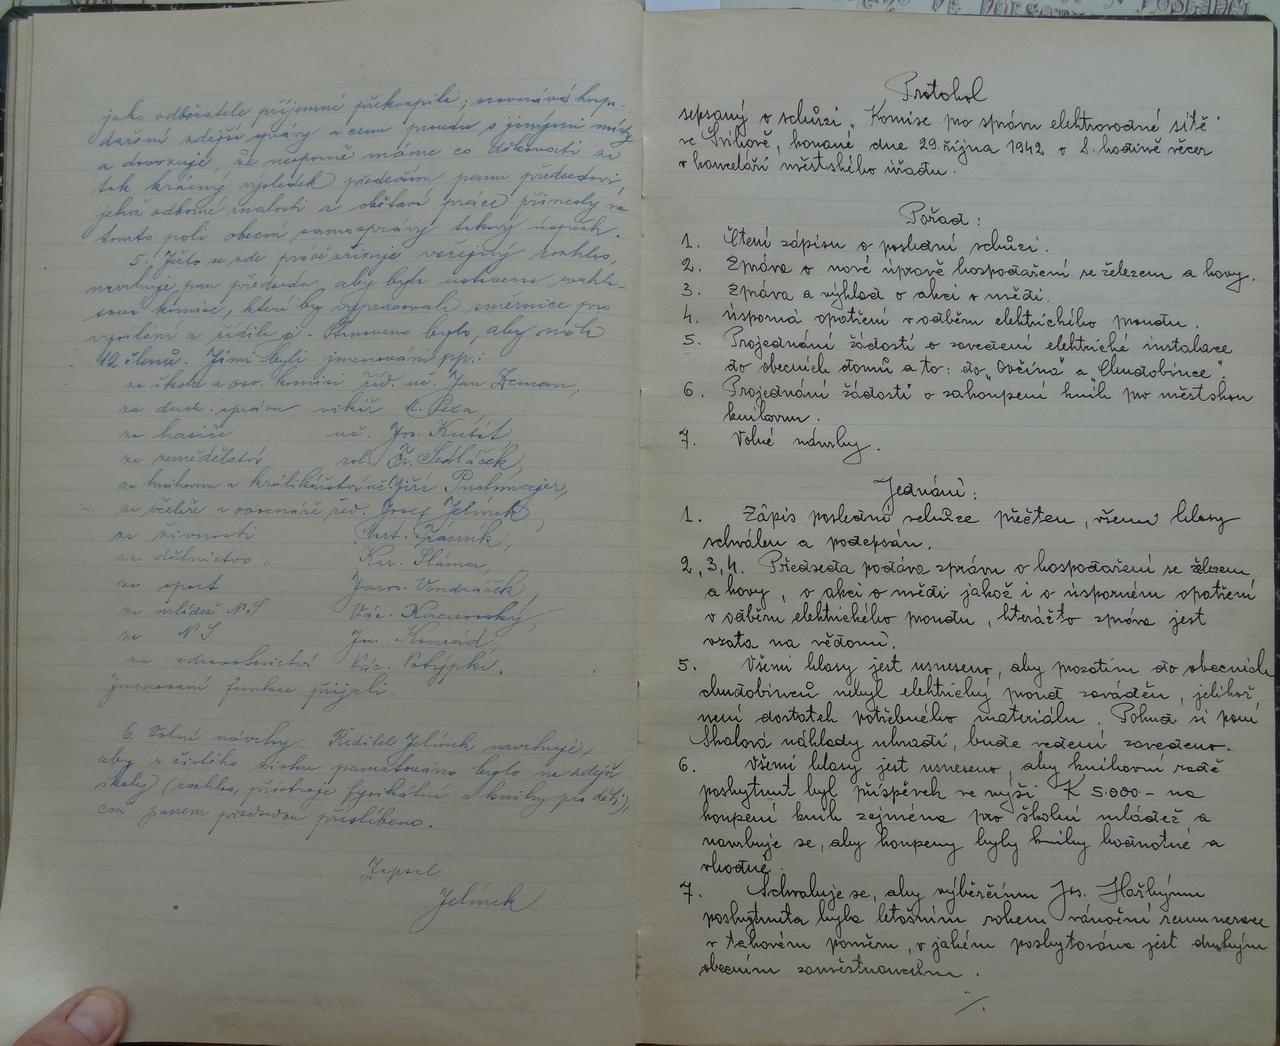 jako odběratele příjemně překvapila; srovnává hospo-
daření zdejší správy a cenu proudu s jinými místy
a dovozuje, že nesporně máme co děkovati za
tak krásný výsledek především panu předsedovi,
jehož odborné znalosti a obětavá práce přinesly na
tomto poli obecní samosprávy takový úspěch.
5. Ježto se zde právě zřizuje veřejný rozhlas,
navrhuje pan předseda, aby byla ustavena rozhla-
sová komise, která by vypracovala směrnice pro
vysílání a řídila je. Stanoveno bylo, aby měla
12 členů. Jimi byli jmenováni pp.:
za školu a osv. komisi říd. uč. Jan Deman,
za duch. správu vikář A. Pexa,
za hasiče uč. Jos. Kubát,
za zemědělství rol. Fr. Sedláček,
za knihovnu a králikářství uč. Jiří Puchmajer,
za včelaře a ovocnáře řed. Josef Jelínek,
za živnosti
za dělnictvo Kar. Sláma,
za sport Jarosl. Vondráček,
za mládež NS Vác.
za NS Jos. Konrád
za zdravotnictví Vác.
Jmenovaní funkce přijali.
6. Volné návrhy. Ředitel Jelínek navrhuje,
aby z čistého zisku pamatováno bylo na zdejší
školy (rozhlas, přístroje fysikální a knihy pro děti),
což panem předsedou přislíbeno.
Zapsal
Jelínek
Protokol
sepsaný o schůzi „Komise pro správu elektrovodné sítě"
ve Švihově, konané dne 29. října 1942 o 8. hodině večer
v kanceláři městského úřadu.
Pořad:
1. Čtení zápisu o poslední schůzi.
2. Zpráva o nové úpravě hospodaření se železem a kovy.
3. Zpráva a výhled o akci s mědí.
4. Úsporná opatření v odběru elektrického proudu.
5. Projednání žádosti o zavedení elektrické instalace
do obecních domů a to: do „Ovčína" a „Chudobince".
6. Projednání žádosti o zakoupení knih pro městskou
knihovnu.
7. Volné návrhy.
Jednání:
1. Zápis poslední schůze přečten, všemi hlasy
schválen a podepsán.
2, 3, 4. Předseda podává zprávu o hospodaření se železem
a kovy, o akci o mědi jakož i o úsporném opatření
v odběru elektrického proudu, kterážto zpráva jest
vzata na vědomí.
5. Všemi hlasy jest usneseno, aby prozatím do obecních
chudobinců nebyl elektrický proud zaváděn, jelikož
není dostatek potřebného materiálu. Pokud si paní
Skalová náklady uhradí, bude vedení zavedeno.
6. Všemi hlasy jest usneseno, aby knihovní radě
poskytnut byl příspěvek ve výši K 5.000- na
koupení knih zejména pro školní mládež a
navrhuje se, aby koupeny byly knihy hodnotné a
vhodné.
7. Schvaluje se, aby výběrčímu Jos.
poskytnuta byla letošním rokem vánoční remunerace
v takovém poměru, v jakém poskytována jest druhým
obecním zaměstnancům.
./.